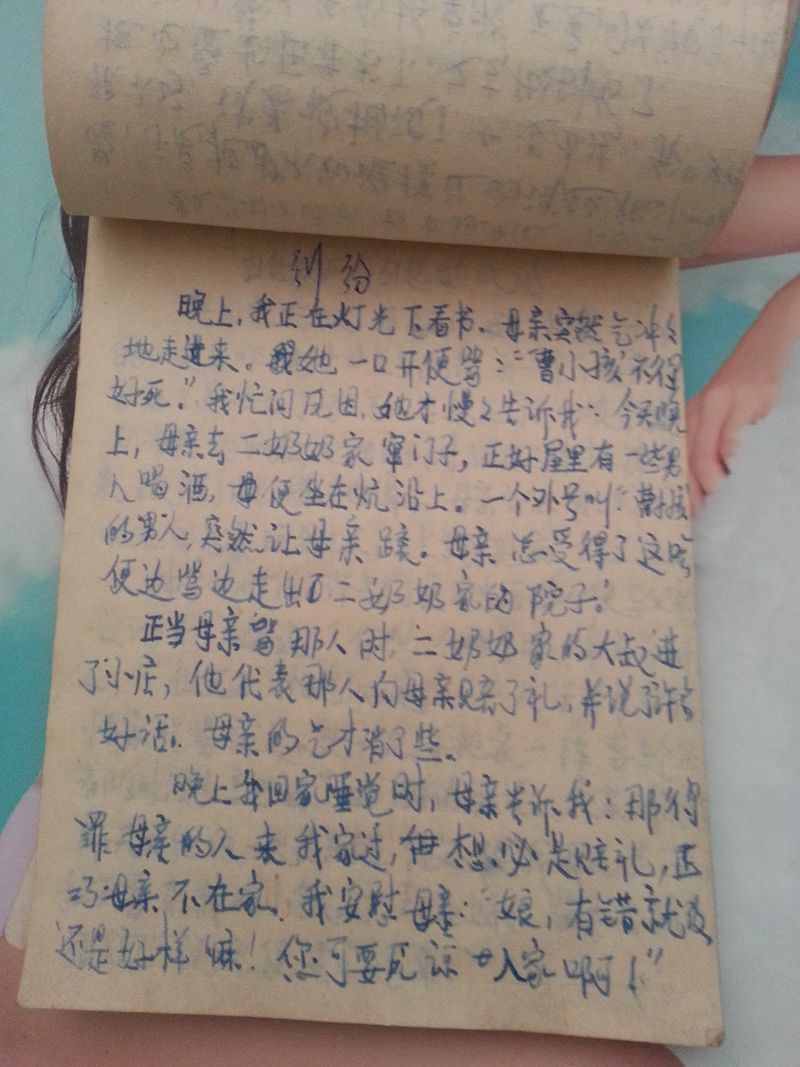 纠纷
晚上，我正在灯光下看书、母亲突然气冲々
地走进来。她一口开便骂：“曹小孩不得
好死。”我忙问原因，她才慢々告诉我：今天晚
上，母亲去二奶奶家窜门子，正好屋里有一些男
人喝酒，母便坐在炕沿上。一个外号叫“曹小孩”
的男人，突然让母亲。母亲怎受得了这
便边骂边走出了二奶奶家的院子。
正当母亲骂那人时，二奶奶家的大叔进
了小店，他代表那人向母亲赔了礼，并说了许多
好话。母亲的气才消了些。
晚上我回家睡觉时，母亲告诉我：那得
罪母亲的人来我家过，想必是赔礼，正
巧母亲不在家。我安慰母亲：“娘，有错就改
还是好样嘛！您可要原谅人家啊！”